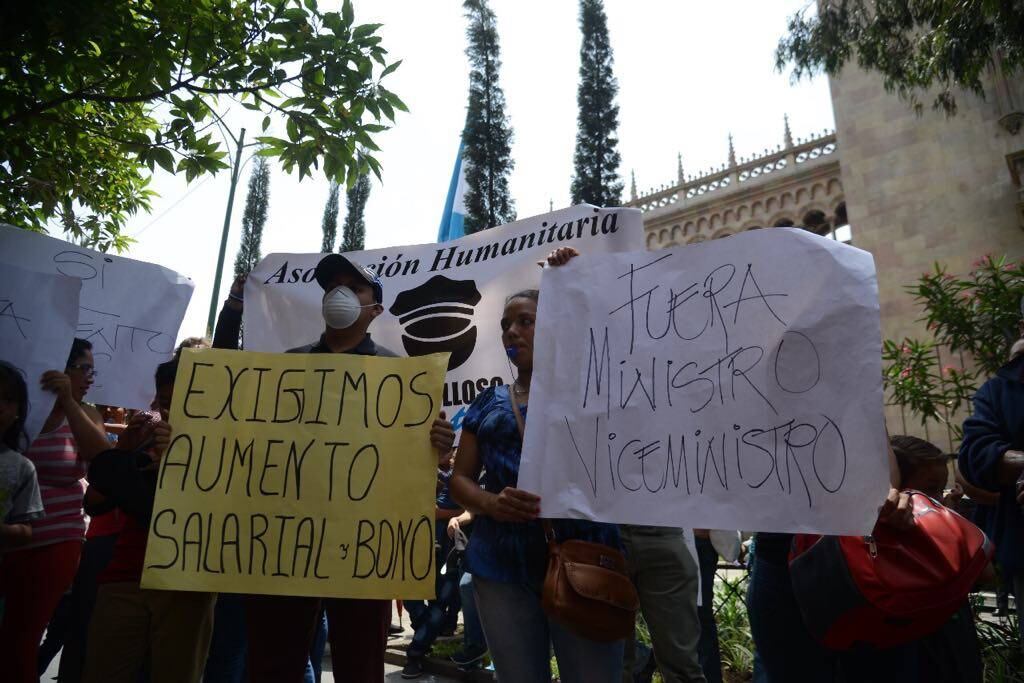 SI
A
Asociación Humanitaria
LLOSO
EXIGIMOS
AUMENTO
SALARIAL y BONO
FUERA
MINISTRO
VICEMINISTRO